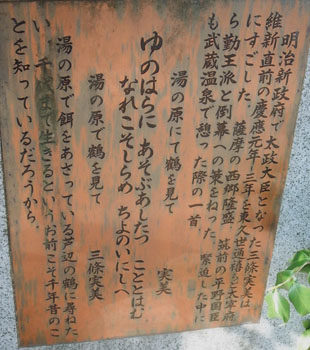 明治新政府で太政大臣となった三條実美は
維新直前の慶應元年、三年を東久世通禧らと太宰府
にすごした。薩摩の西郷隆盛、筑前の平野国臣
ら勤王派と倒幕への策をねった。緊迫した中に
も武蔵温泉で憩った際の一首。
湯の原にて鶴を見て 実美
ゆのはらに あそぶあしたづ こととはむ
なれこそしらめ ちよのいにしへ
湯の原で鶴を見て 三條実美
湯の原で餌をあさっている芦辺の鶴に尋ねた
い、千歳まで生きるというお前こそ千年昔のこ
とを知っているだろうから。